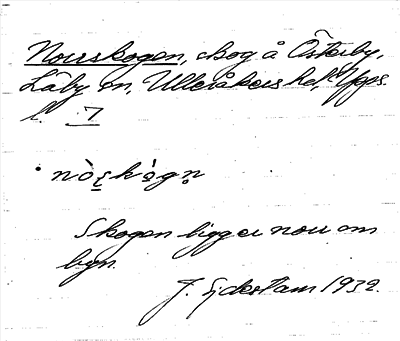 Norrskogen, skog å Österby,
Läby sn, Ulleråkers hd, Upps.
l. 7
nò̱ṟskò̱gn̥
Skogen ligger norr om
byn.
J. Sjderstam 1932.